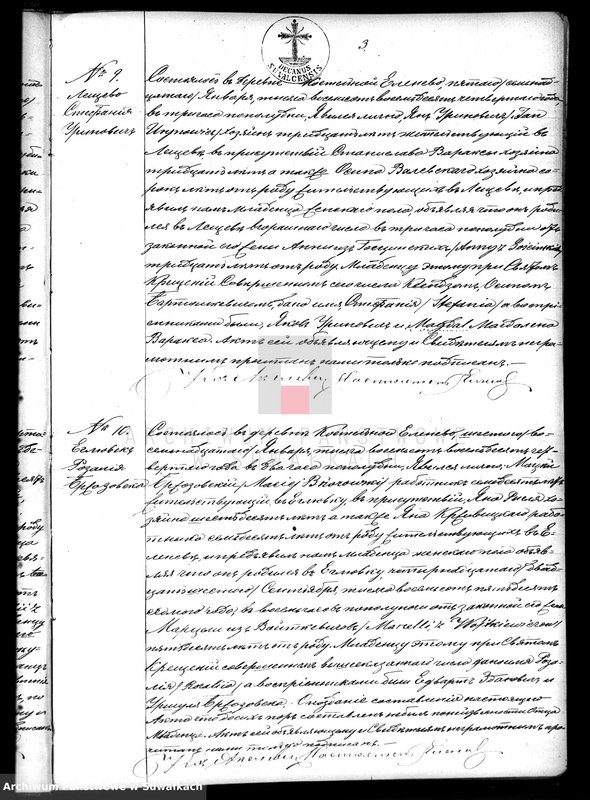 DECANUS SUVALCENSIS
3
№ 9.
Лещево
Стефанія
Уриновичъ
Состоялось въ деревнѣ Костельной Еленево, пятаго/семнад-
цатаго/ Января, тысяча восемьсотъ восемьдесятъ четвертаго года
въ три часа пополудни. Явился лично, Янъ Уриновичъ /Jan
хозяинъ тридцати лѣтъ жительствующій въ
Лещевѣ, въ присутствіи Станислава Варакси хозяина
тридцати лѣтъ а также Осипа Валевскаго хозяина со-
рокъ лѣтъ отъ роду жительствующихъ въ Лещевѣ, и предъ-
явилъ намъ младенца женскаго пола, объявляя что онъ роди-
лся въ Лещевѣ, втораго числа въ три часа пополудни отъ
законной его жены Анны изъ
тридцати лѣтъ отъ роду. Младенцу этому при Святомъ
Крещеніи совершенномъ сего числа Ксёндзомъ, Осипомъ
Бартошкевичемъ, дано имя, Стефанія /Stefania/ а воспрі-
емниками были, Яковъ Уриновичъ и Magdal Магдалена
Варакса. Актъ сей объявляющему и Свидѣтелямъ негра-
мотнымъ прочитанъ, нами только подписанъ. —
№ 10.
Розалія
Бржозовска
Состоялось въ деревнѣ Костельной Еленево, шестаго/во-
семнадцатаго/ Января, тысяча восемьсотъ восемьдесятъ чет-
вертаго года въ два часа пополудни. Явился лично, Мацей
Бржозовскій /Maciej Brzozowski/ работникъ семьдесятъ лѣтъ
жительствующій въ въ присутствіи, Яна хо-
зяина шестьдесятъ лѣтъ а также Яна рабо-
тника семьдесятъ лѣтъ отъ роду жительствующихъ въ Е-
леневѣ, и предъявилъ намъ младенца женскаго пола объяв-
ляя что онъ родился въ четырнадцатаго/двад-
цать шестаго/ Сентября, тысяча восемьсотъ пятьдесятъ
года, въ восемь часовъ пополудни отъ законной его жены
Марцели изъ Войткевичовъ /Marcelli z Wojtkiewiczow/
пятьдесятъ лѣтъ отъ роду. Младенцу этому при Святомъ
Крещеніи совершенномъ вышесказаннаго числа дано имя Роза-
лія /Rozalia/ а воспріемниками были Едвартъ и
Уршуля Бржозовска. Опозданіе составленія настоящаго
Акта
Младенца. Актъ сей объявляющему и Свидѣтелямъ неграмотнымъ про-
читанъ нами только подписанъ. —
ARCHIWUM PAŃSTWOWE
Archiwum Państwowe w Suwałkach